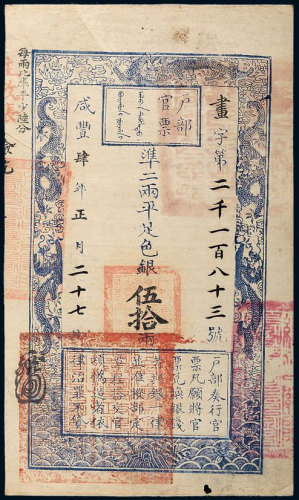 畫字第二千一百八十三號
戶部
官票
準二兩平足色銀伍拾兩
咸豐肆年正月二十七日
每兩比庫平少陸分
戶部奏行官
票凡願將官
票兌換銀錢
者與銀一律
並准按部定
章程搭交官
項偽造者依
律治罪不貸